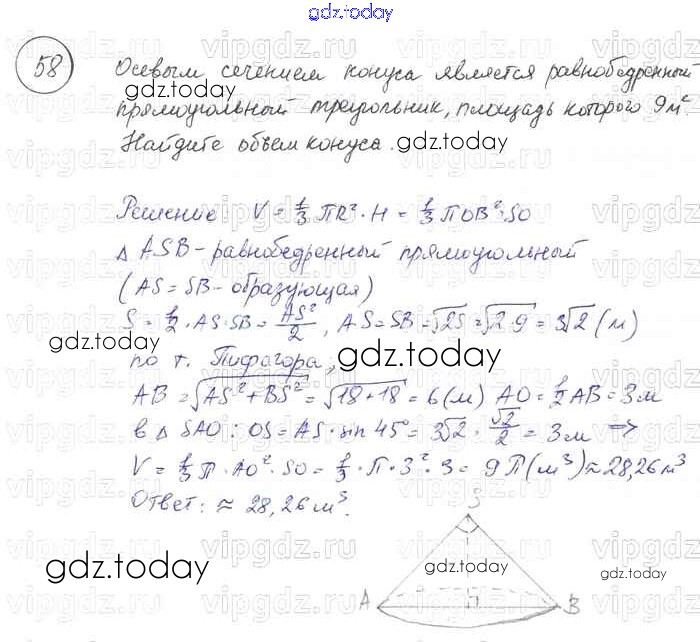 gdz.today
58 Осевым сечением конуса является равнобедренный
прямоугольный треугольник, площадь которого 9м².
gdz.today
Найдите объем конуса.
gdz.today
Решение: V = 1/3 πR²·H = 1/3 πOB²·SO
△ ASB - равнобедренный прямоугольный
(AS = SB - образующая)
S = 1/2 · AS·SB = AS²/2, AS = SB = √2S = √2·9 = 3√2 (м)
по т. Пифагора;
gdz.today
gdz.today
AB = √AS²+BS² = √18+18 = 6(м) AO = 1/2 AB = 3м
в △ SAO: OS = AS·sin 45° = 3√2 · √2/2 = 3м ⇒
V = 1/3 π·AO²·SO = 1/3·π·3²·3 = 9π(м³) ≈ 28,26м³
Ответ: ≈ 28,26м³.
S
gdz.today
gdz.today
gdz.today
A
B
vipgdz.ru